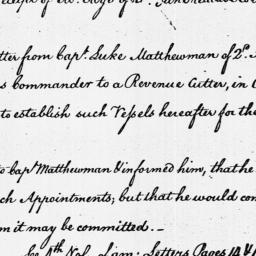 tter from Capt. Luke Matthewman of 2d.
s commander to a Revenue Cutter, in
to establish such Vessels hereafter for the
to Capt. Matthewman & informed him, that he
ch Appointments, but that he would con
m it may be committed.—
Letters Pages 14 &